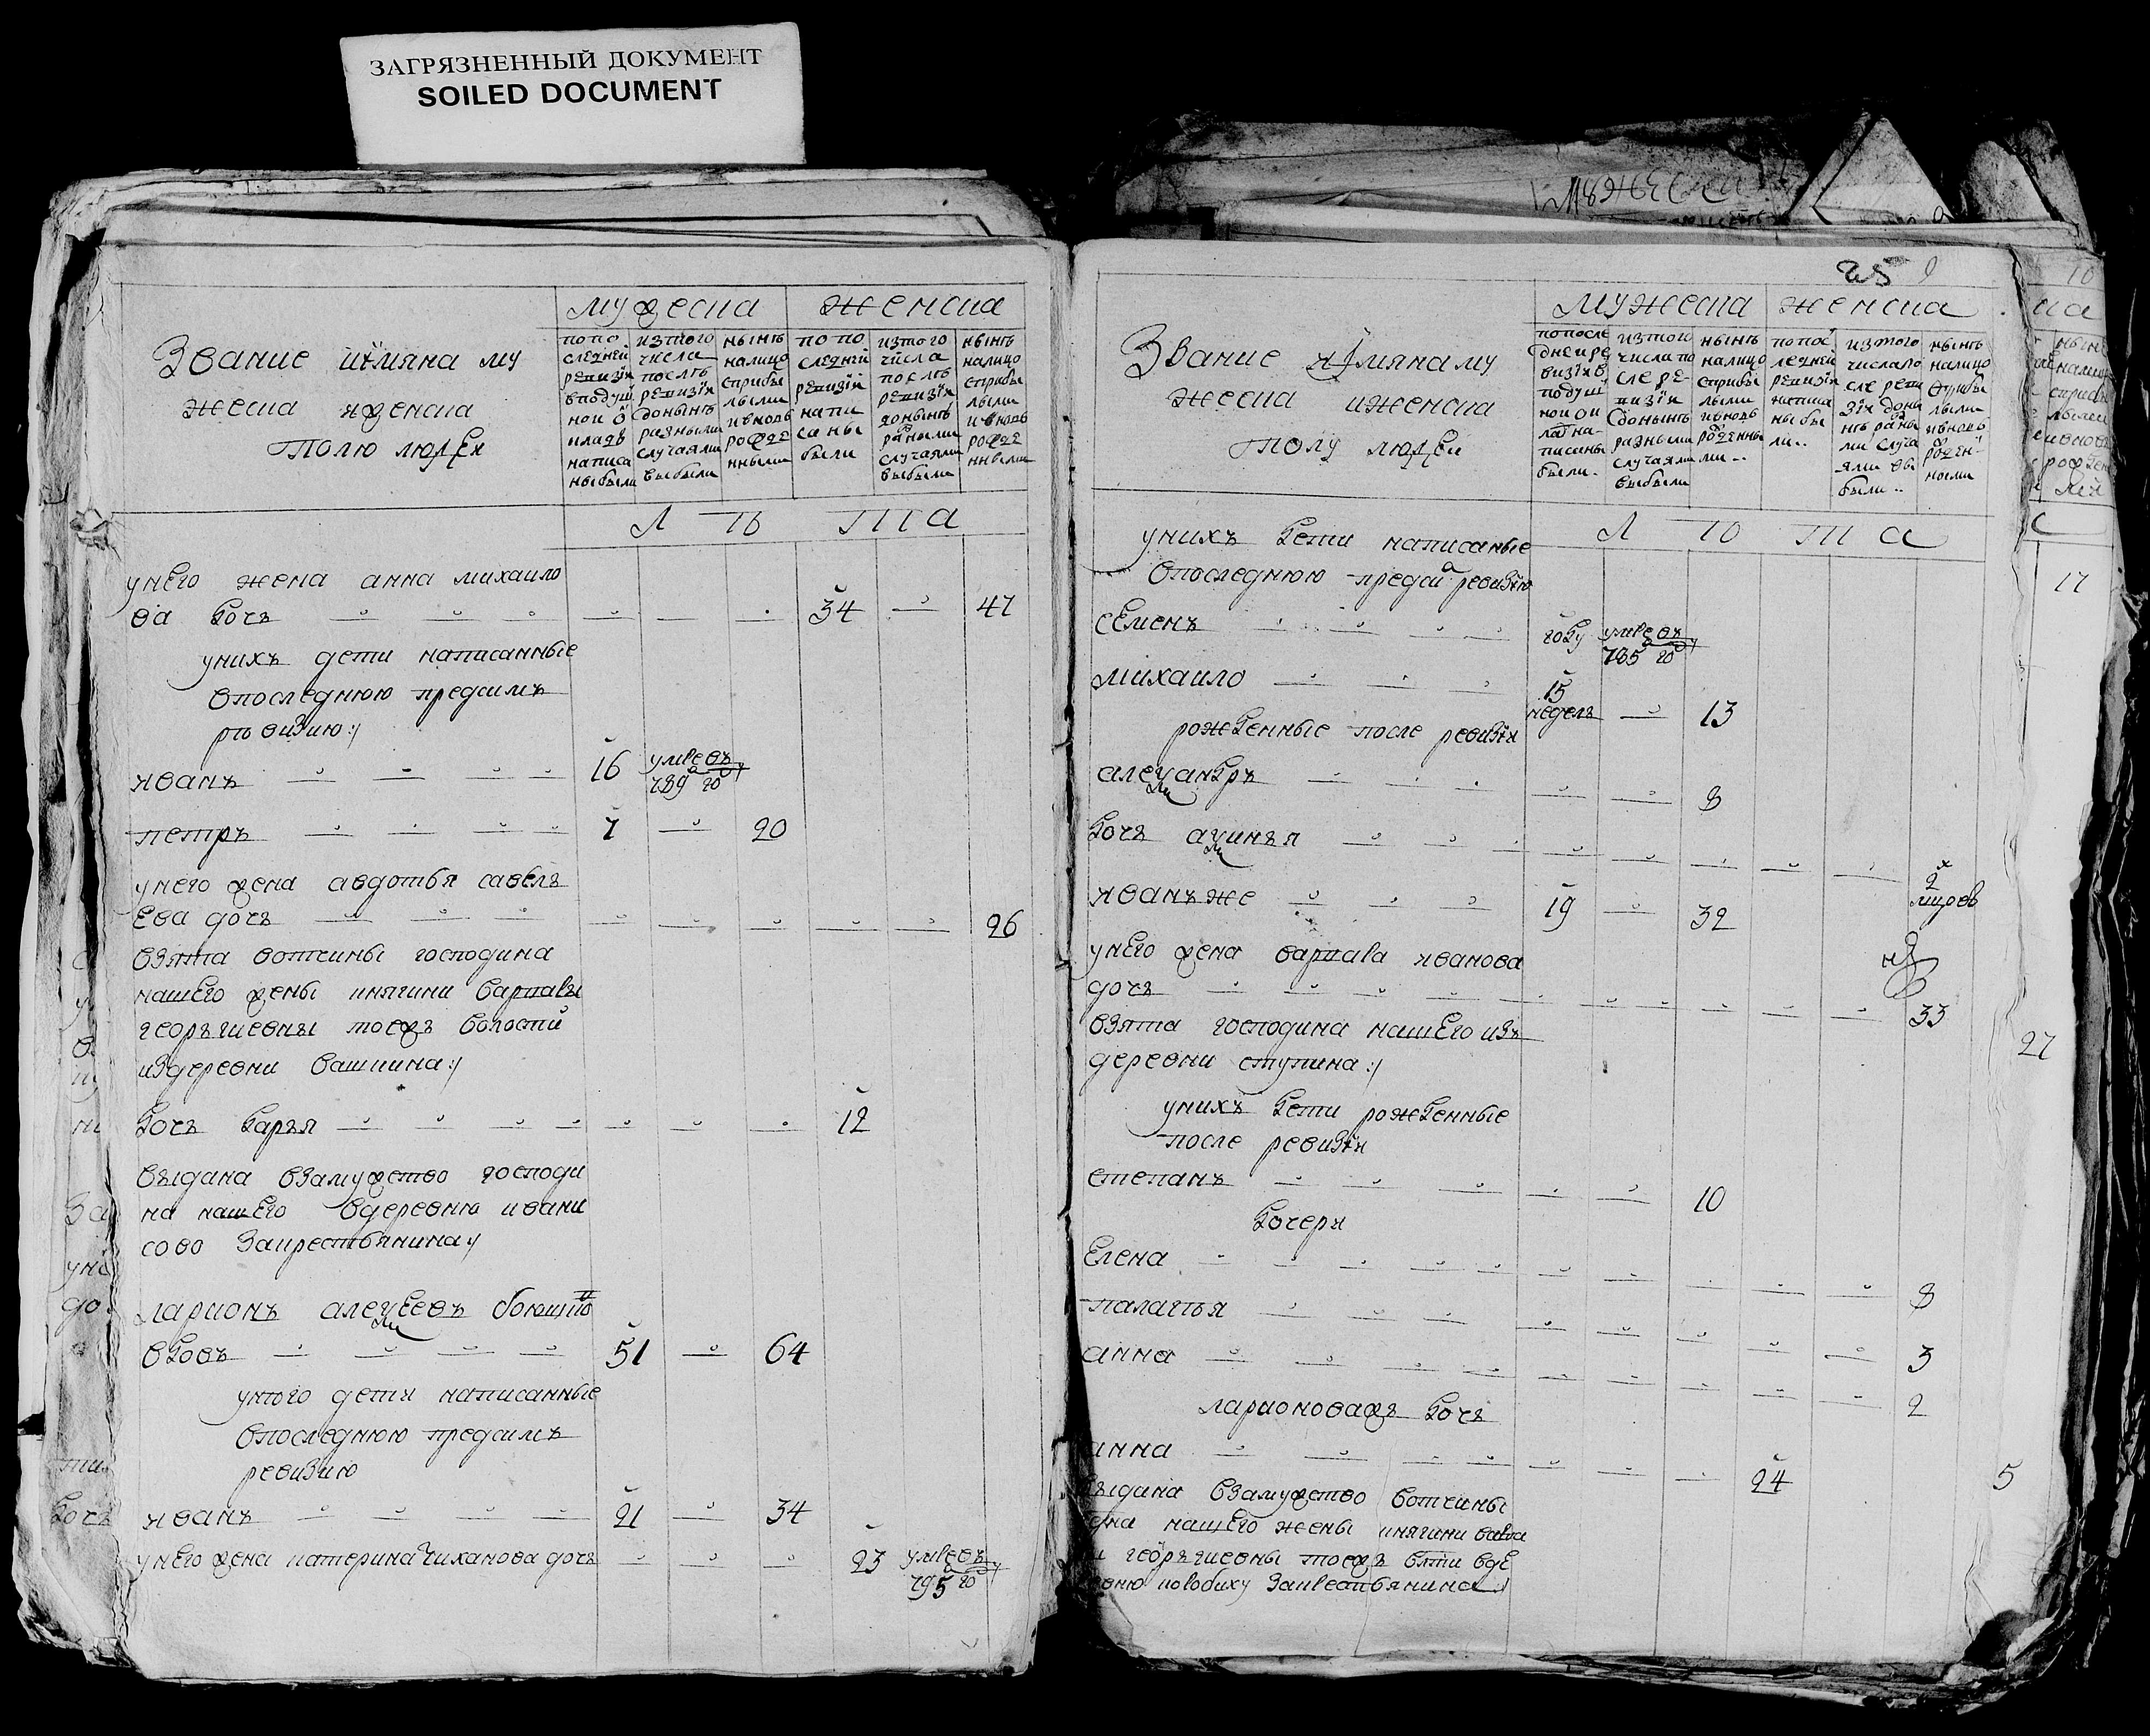 ЗАГРЯЗНЕННЫЙ ДОКУМЕНТ
SOILED DOCUMENT
мужеска женска
Звание иимяна му
жеска иженска
Полю людеи
попо
следней
ревизіи
вподуш
ной о
кладъ
написа
ны были
изтого
числа
послѣ
ревизіи
донынѣ
разными
случаями
выбыли
нынѣ
налицо
сприбы
лыми
ивновь
рожде
нными
попо
следней
ревизіи
напи
саны
были
изтого
числа
послѣ
ревизіи
донынѣ
разными
случаями
выбыли
нынѣ
налицо
сприбы
лыми
ивновь
рожде
нными
Л Ѣ Т А
унего жена анна михаило
ва дочь 34 47
унихъ дети написанные
впоследнюю предсимъ
рѣвизию:/
иванъ 16 умре въ
789 году
петръ 7 20
унего жена авдотья савель
ева дочь 26
взята вотчины господина
нашего жены княгини варвары
георъгиевны тоежъ волости
издеревни вашкина:/
дочь даръя 12
выдана взамужство господи
на нашего вдеревню ивани
сово закрестьянина:/
ларионъ алексеевъ
вдовъ 51 64
унего дети написанные
впоследнюю предсимъ
ревизию
иванъ 21 34
унего жена катерина Чиханова дочь 23 умре въ
795 году
25 9
мужеска женска
Звание иимяна му
жеска иженска
полу людеи
попосле
дней ре
визіи в
подуш
ной ок
лад на
писаны
были
изтого
числа по
сле ре
визіи
донынѣ
разными
случаями
выбыли
нынѣ
налицо
сприбы
лыми
ивновь
рожденны
ми
попос
ледней
ревизіи
написа
ны бы
ли
изтого
числапо
сле реви
зіи доны
нѣ разны
ми случа
ями вы
были
нынѣ
налицо
сприбы
лыми
ивновь
рожден
ными
Л Ѣ Т А
унихъ дети написаные
впоследнюю предсимъ ревизию
семенъ году умре въ
785 году
михаило 15
недель 13
рожденные после ревизіи
александръ 8
дочь аксинъя 2
иванъ же 19 32
унего жена варвара иванова
дочь 33
взята господина нашего изъ
деревни ступина:/
унихъ дети рожденные
после ревизіи
степанъ 10
дочери
Елена 8
палагъя 3
анна 2
ларионоважъ дочь
анна 24
выдана взамужство вотчины
нашего жены княгини варва
георъгиевны тоежъ влти вде
закрестьянина:/
17
27
5